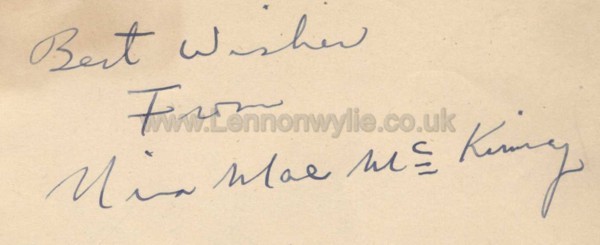 Best Wishes
From
www.Lennonwylie.co.uk
Nina Mae Mc Kinney